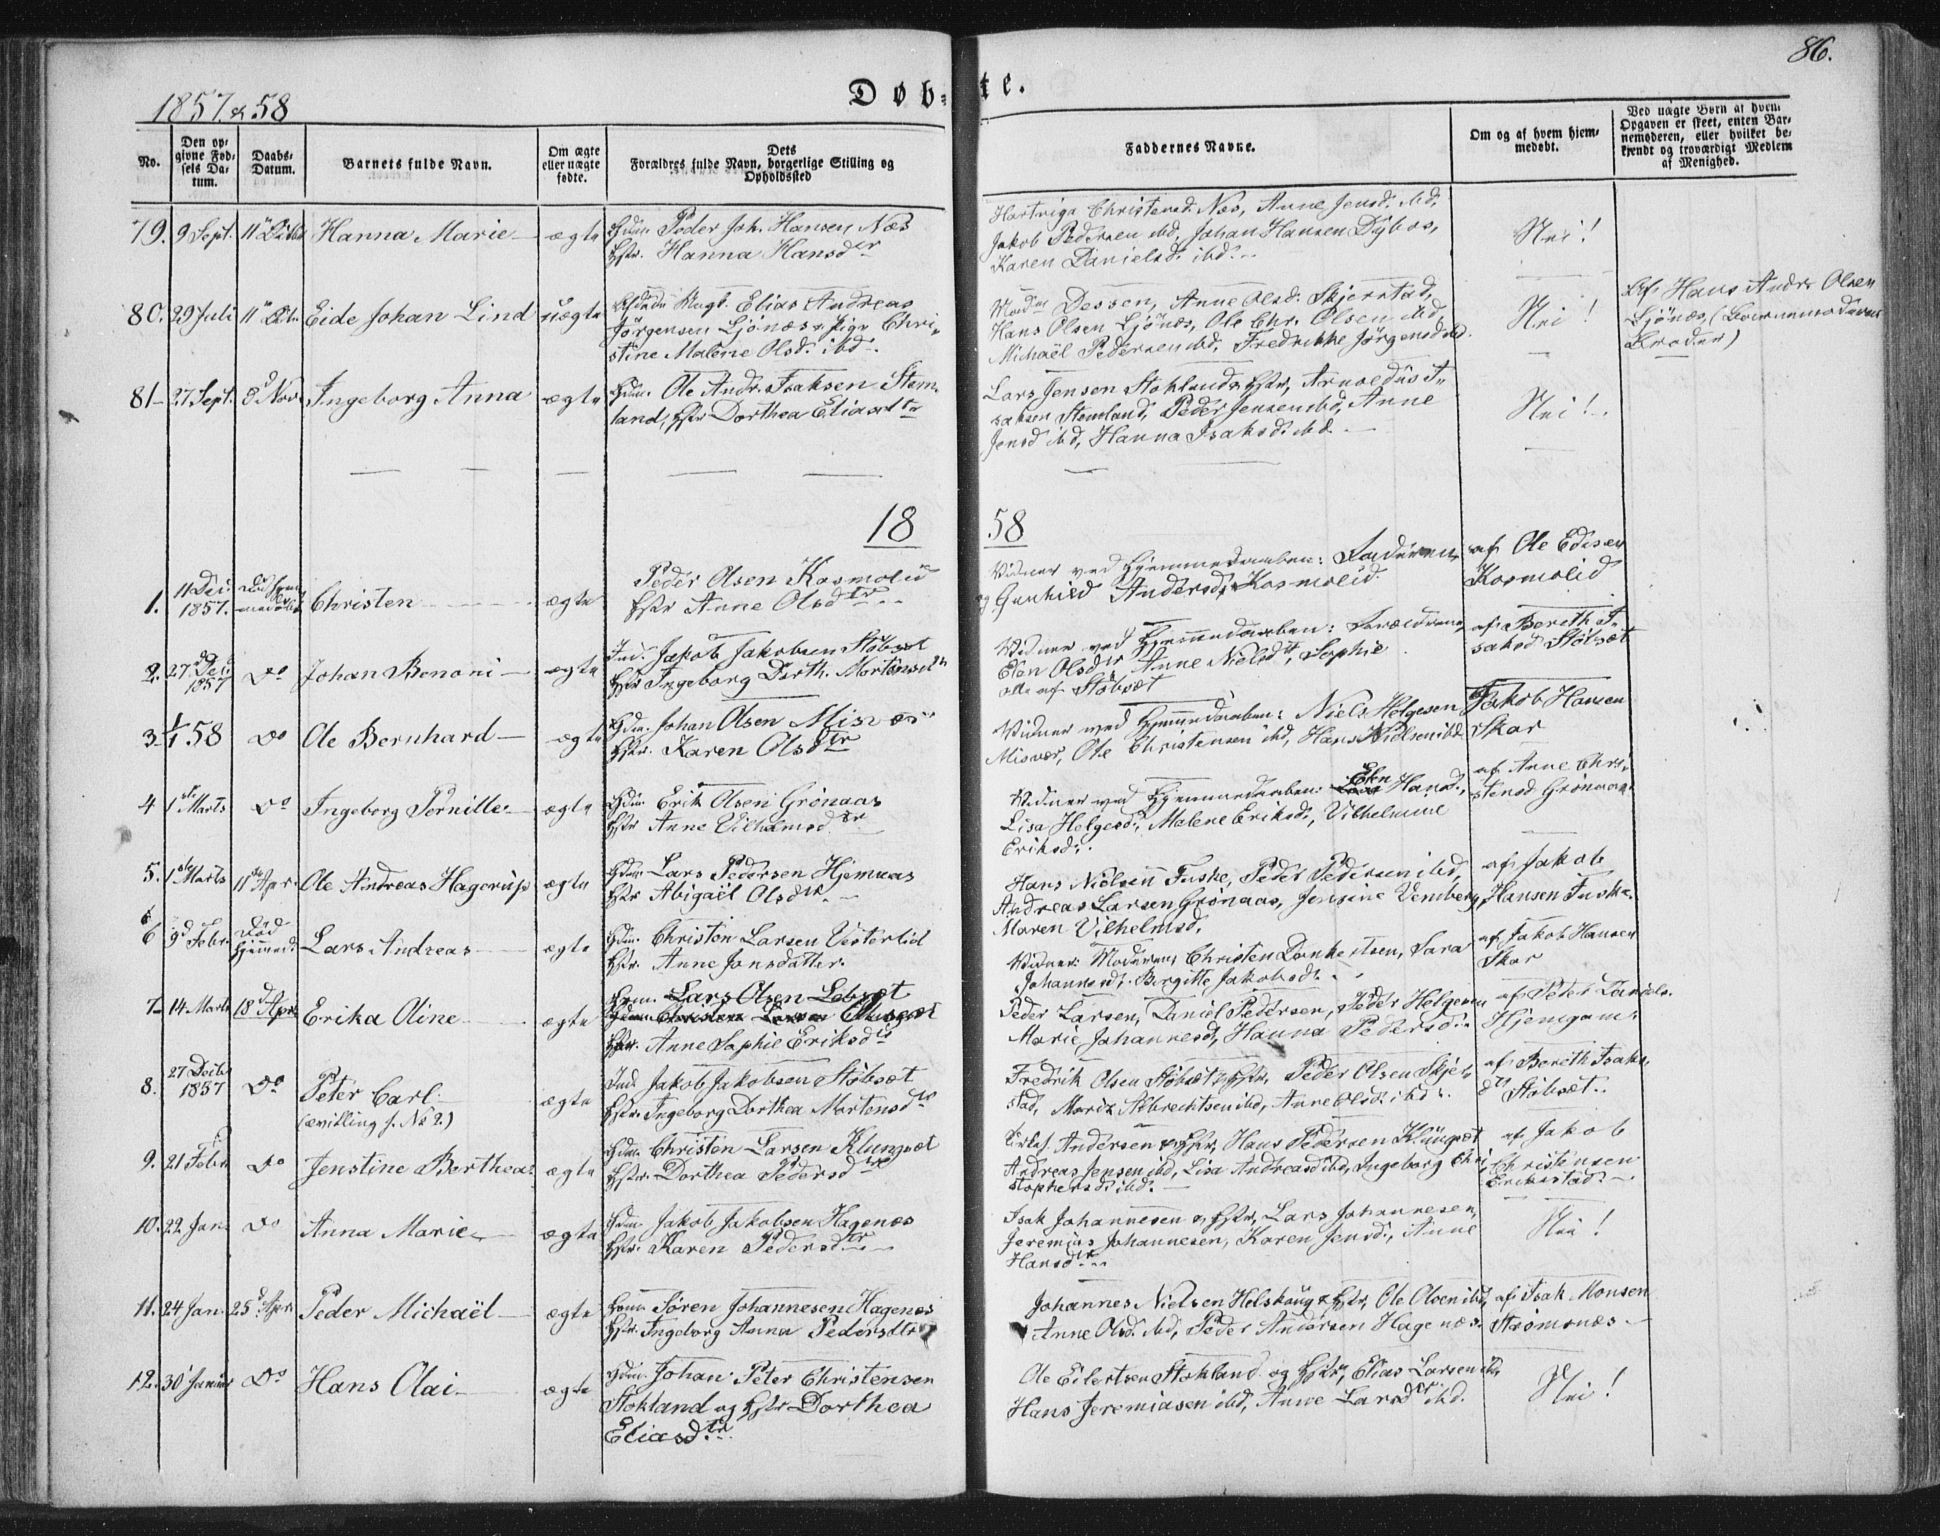 86.
Døb-te.
1857 & 58
No.
Den op-
givne Fød-
sels Da-
tum.
Daabs-
Datum.
Barnets fulde Navn.
Om ægte
eller uægte
fødte.
Dets
Forældres fulde Navn, borgerlige Stilling og
Opholdssted
Faddernes Navne.
Om og af hvem hjem-
medøbt.
Ved uægte Børn af hvem
Opgaven er skeet, enten Bar-
nemoderen, eller hvilket be-
kjendt og troværdigt Medlem
af Menighed.
79. 9 Sept. Hanna Marie ægte
Peder Joh. Hansen Næs
Hanna Hansdtr
Christensd. Næs, Anne Jensd. ibd,
Jakob Pedersen ibd, Johan Hansen Dybos,
Karen Danielsd. ibd.
Nei!
80. 29 Juli Eide Johan Lind uægte
Elias Andreas
Jørgensen Ljönæs & Pige Chri-
stine Malene Olsd. ibd.
Dessen, Anne Olsd. Skjerstad,
Hans Olsen Ljönæs, Ole Chr. Olsen ibd,
Michaël Pedersen ibd, Fredrikke Jörgensd ibd.
Nei!
Af Hans Andr. Olsen
Ljönæs, (Barnemoderens
Broder)
81 27 Sept. 8d Nov. Ingeborg Anna ægte
Ole Andr. Isaksen Stem-
land, Dorthea Eliasdtr
Lars Jensen Stokland & Hstr, Arnoldus I-
saksen Stemland, Peder Jensen ibd, Anne
Jensd ibd, Hanna Isaksd. ibd.
Nei!
18 58
1. 11 Dec.
1857. Christen ægte
Peder Olsen Kosmolid
Hstr Anne Olsdtr
Vidner ved Hjemmedaaben: Faderen,
og Gunhild Andersd. Kosmolid.
af Ole Edisen
Kosmolid
2. 27 Dec.
1857 Do Johan Benoni ægte
Ind. Jakob Jakobsen Stöbset
Hstr Ingeborg Dorth. Mortensdtr
Vidner ved Hjemmedaaben: Forældrene,
Elen Olsdtr Anne Nielsdtr, Sophie
alle af Stöbsæt
af Bereth I-
saksd Stöbsæt
3 1/1 58 Do Ole Bernhard ægte
Johan Olsen Misvær
Hstr. Karen Olsdtr
Vidner ved Hjemmedaaben: Niels Helgesen
Misvær, Ole Christensen ibd, Hans Nielsen ibd
Jakob Hansen
Skar
4 1ste Marts Do Ingeborg Pernille ægte
Erik Olsen Grönaas
Hstr Anne Vilhelmsdtr
Vidner ved Hjemmedaaben: Elen Hansd.,
Lisa Helgesd., Malene Eriksd., Vilhelmine
Eriksd.
af Anne Chri-
stensd Grönaas
5. 1ste Marts 11te Apr. Ole Andreas Hagerup ægte
Lars Pedersen Hjemaas
Hstr Abigaël Olsdtr
Hans Nielsen Fuske, Peder Pedersen ibd,
Andreas Larsen Grönaas, Jensine Vemberg,
Maren Vilhelmsd.
af Jakob
Hansen Fuske
6 9d Febr. Död
Hjemmed. Lars Andreas ægte
Christen Larsen Vesterlid
Hstr. Anne Jonsdatter
Vidner: Moderen, Christen Dankertsen, Sara
Johannesd. Birgitte Jakobsd.
af Jakob Hansen
Skar
7 14 Marts 18d Apr. Erika Oline ægte
Lars Olsen Lebsæt
Hstr. Anne Sophie Eriksdtr
Peder Larsen, Daniel Pedersen, Peder Helgesen
Marie Johannesd, Hanna Pedersd.
af Peter Daniels.
Hjemgam.
8. 27 Decbr
1857 Do Peter Carl ægte
(Tvilling f. No 2.)
Ind. Jakob Jakobsen Stöbsæt
Hstr. Ingeborg Dorthea Mortensdtr
Fredrik Olsen Stöbsæt & Hstr, Peder Olsen Skjer-
stad, Albrechtsen ibd, Anne Olsd. ibd.
af Bereth Isaks-
dtr Stöbsæt.
9. 21 Febr Do Jenstine Berthea ægte
Christen Larsen Klungset
Hstr. Dorthea Pedersdtr
Andersen & Hstr, Hans Pedersen Klungset
Andreas Jensen ibd, Lisa Andreasd ibd, Ingeborg Chri-
stophersd. ibd.
af Jakob
Christensen
Erikstad
10. 22 Jan. Do Anna Marie ægte
Jakob Jakobsen Hagenæs
Hstr. Karen Pedersdtr
Isak Johannesen & Hstr, Lars Johannesen,
Jeremias Johannesen, Karen Jensd., Anne
Hansdtr
Nei!
11. 24 Jan. 25d Apr. Peder Michaël ægte
Sören Johannesen Hagenæs
Hstr. Ingeborg Anna Pedersdtr
Johannes Nielsen Helskaug & Hstr, Ole Olsen ibd,
Anne Olsd. ibd, Peder Andersen Hagenæs.
af Isak Monsen
Strömsnæs
12. 30 Januar Do Hans Olai ægte
Johan Peter Christensen
Stokland og Hstr Dorthea
Eliasdtr
Ole Eilertsen Stokland og Hstr, Elias Larsen ibd,
Hans Jeremiasen ibd, Anne Larsdtr ibd.
Nei!